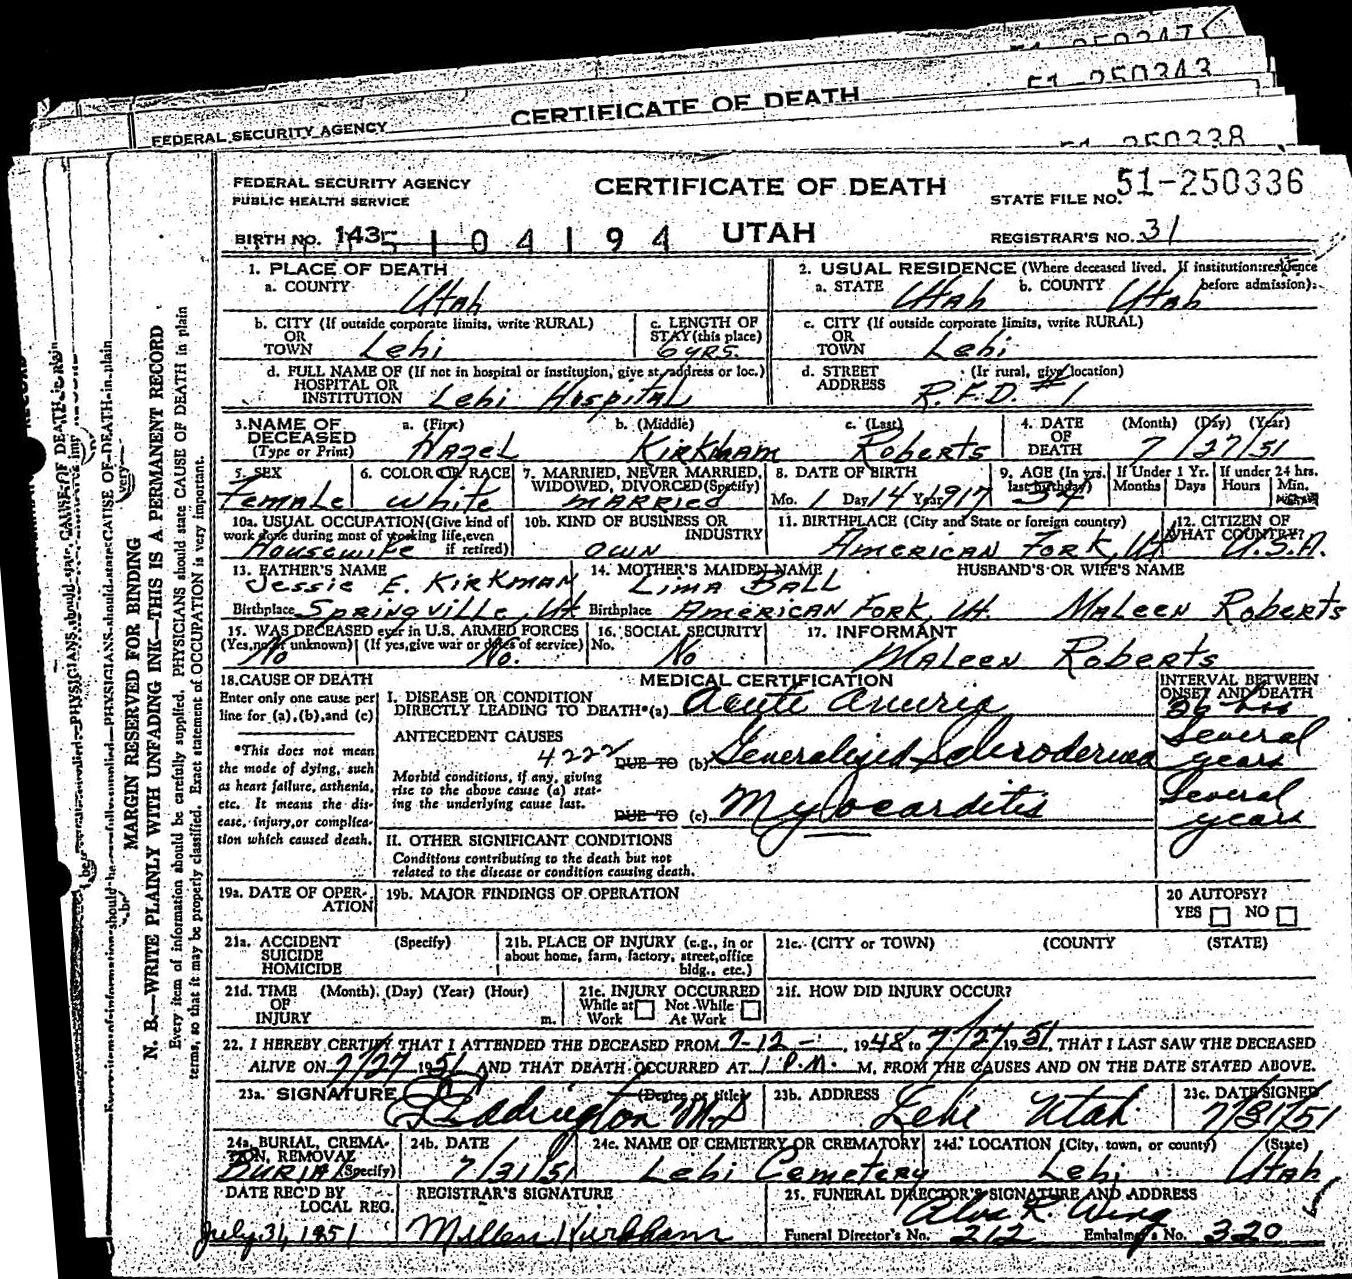 51-250343
CERTIFICATE OF DEATH
FEDERAL SECURITY AGENCY
51-250338
FEDERAL SECURITY AGENCY
PUBLIC HEALTH SERVICE
CERTIFICATE OF DEATH
STATE FILE NO. 51-250336
BIRTH NO. 143 5104194
UTAH
REGISTRAR'S NO. 31
1. PLACE OF DEATH
a. COUNTY Utah
2. USUAL RESIDENCE (Where deceased lived. If institution: residence before admission).
a. STATE Utah b. COUNTY Utah
b. CITY (If outside corporate limits, write RURAL)
OR
TOWN Lehi
c. LENGTH OF
STAY (this place)
6 yrs.
c. CITY (If outside corporate limits, write RURAL)
OR
TOWN Lehi
d. FULL NAME OF (If not in hospital or institution, give st. address or loc.)
HOSPITAL OR
INSTITUTION Lehi Hospital
d. STREET (If rural, give location)
ADDRESS R.F.D. #1
3. NAME OF
DECEASED
(Type or Print)
a. (First) b. (Middle) c. (Last)
Hazel Kirkham Roberts
4. DATE
OF
DEATH
(Month) (Day) (Year)
7/27/51
5. SEX
Female
6. COLOR OR RACE
White
7. MARRIED, NEVER MARRIED,
WIDOWED, DIVORCED (Specify)
MARRIED
8. DATE OF BIRTH
Mo. 1 Day 14 Year 1917
9. AGE (In yrs.
last birthday)
34
If Under 1 Yr.
Months Days
If under 24 hrs.
Hours Min.
10a. USUAL OCCUPATION (Give kind of
work done during most of working life, even
if retired)
Housewife
10b. KIND OF BUSINESS OR
INDUSTRY
own
11. BIRTHPLACE (City and State or foreign country)
American Fork, Ut
12. CITIZEN OF
WHAT COUNTRY?
U.S.A.
13. FATHER'S NAME
Jessie E. Kirkman
Birthplace Springville, Ut
14. MOTHER'S MAIDEN NAME
Lima Ball
Birthplace American Fork, Ut.
HUSBAND'S OR WIFE'S NAME
Maleen Roberts
15. WAS DECEASED ever in U.S. ARMED FORCES
(Yes, no, or unknown) (If yes, give war or dates of service)
No No.
16. SOCIAL SECURITY
No. No
17. INFORMANT
Maleen Roberts
18. CAUSE OF DEATH
Enter only one cause per
line for (a), (b), and (c)
*This does not mean
the mode of dying, such
as heart failure, asthenia,
etc. It means the dis-
ease, injury, or complica-
tion which caused death.
MEDICAL CERTIFICATION
I. DISEASE OR CONDITION
DIRECTLY LEADING TO DEATH*(a) Acute Anuria
ANTECEDENT CAUSES
4222
DUE TO (b) Generalized Scleroderma
Morbid conditions, if any, giving
rise to the above cause (a) stat-
ing the underlying cause last.
DUE TO (c) Myocarditis
INTERVAL BETWEEN
ONSET AND DEATH
36 hrs
Several
years
Several
years
II. OTHER SIGNIFICANT CONDITIONS
Conditions contributing to the death but not
related to the disease or condition causing death.
19a. DATE OF OPER-
ATION
19b. MAJOR FINDINGS OF OPERATION
20 AUTOPSY?
YES NO
21a. ACCIDENT (Specify)
SUICIDE
HOMICIDE
21b. PLACE OF INJURY (e.g., in or
about home, farm, factory, street, office
bldg., etc.)
21c. (CITY or TOWN) (COUNTY (STATE)
21d. TIME (Month) (Day) (Year) (Hour)
OF
INJURY m.
21e. INJURY OCCURRED
While at Work Not While At Work
21f. HOW DID INJURY OCCUR?
22. I HEREBY CERTIFY THAT I ATTENDED THE DECEASED FROM 7-12-, 1948 to 7/27 1951, THAT I LAST SAW THE DECEASED
ALIVE ON 7/27 1951 AND THAT DEATH OCCURRED AT 1 P.M. M, FROM THE CAUSES AND ON THE DATE STATED ABOVE.
23a. SIGNATURE (Degree or title)
Eddington MD
23b. ADDRESS
Lehi Utah
23c. DATE SIGNED
7/31/51
24a. BURIAL, CREMA-
TION, REMOVAL
(Specify)
Burial
24b. DATE
7/31/51
24c. NAME OF CEMETERY OR CREMATORY
Lehi Cemetery
24d. LOCATION (City, town, or county) (State)
Lehi Utah
DATE REC'D BY
LOCAL REG.
July 31, 1951
REGISTRAR'S SIGNATURE
Kirkham
25. FUNERAL DIRECTOR'S SIGNATURE AND ADDRESS
Alva R Wing
Funeral Director's No. 212 Embalmer's No. 320
MARGIN RESERVED FOR BINDING
N. B.—WRITE PLAINLY WITH UNFADING INK—THIS IS A PERMANENT RECORD
Every item of information should be carefully supplied. PHYSICIANS should state CAUSE OF DEATH in plain
terms, so that it may be properly classified. Exact statement of OCCUPATION is very important.